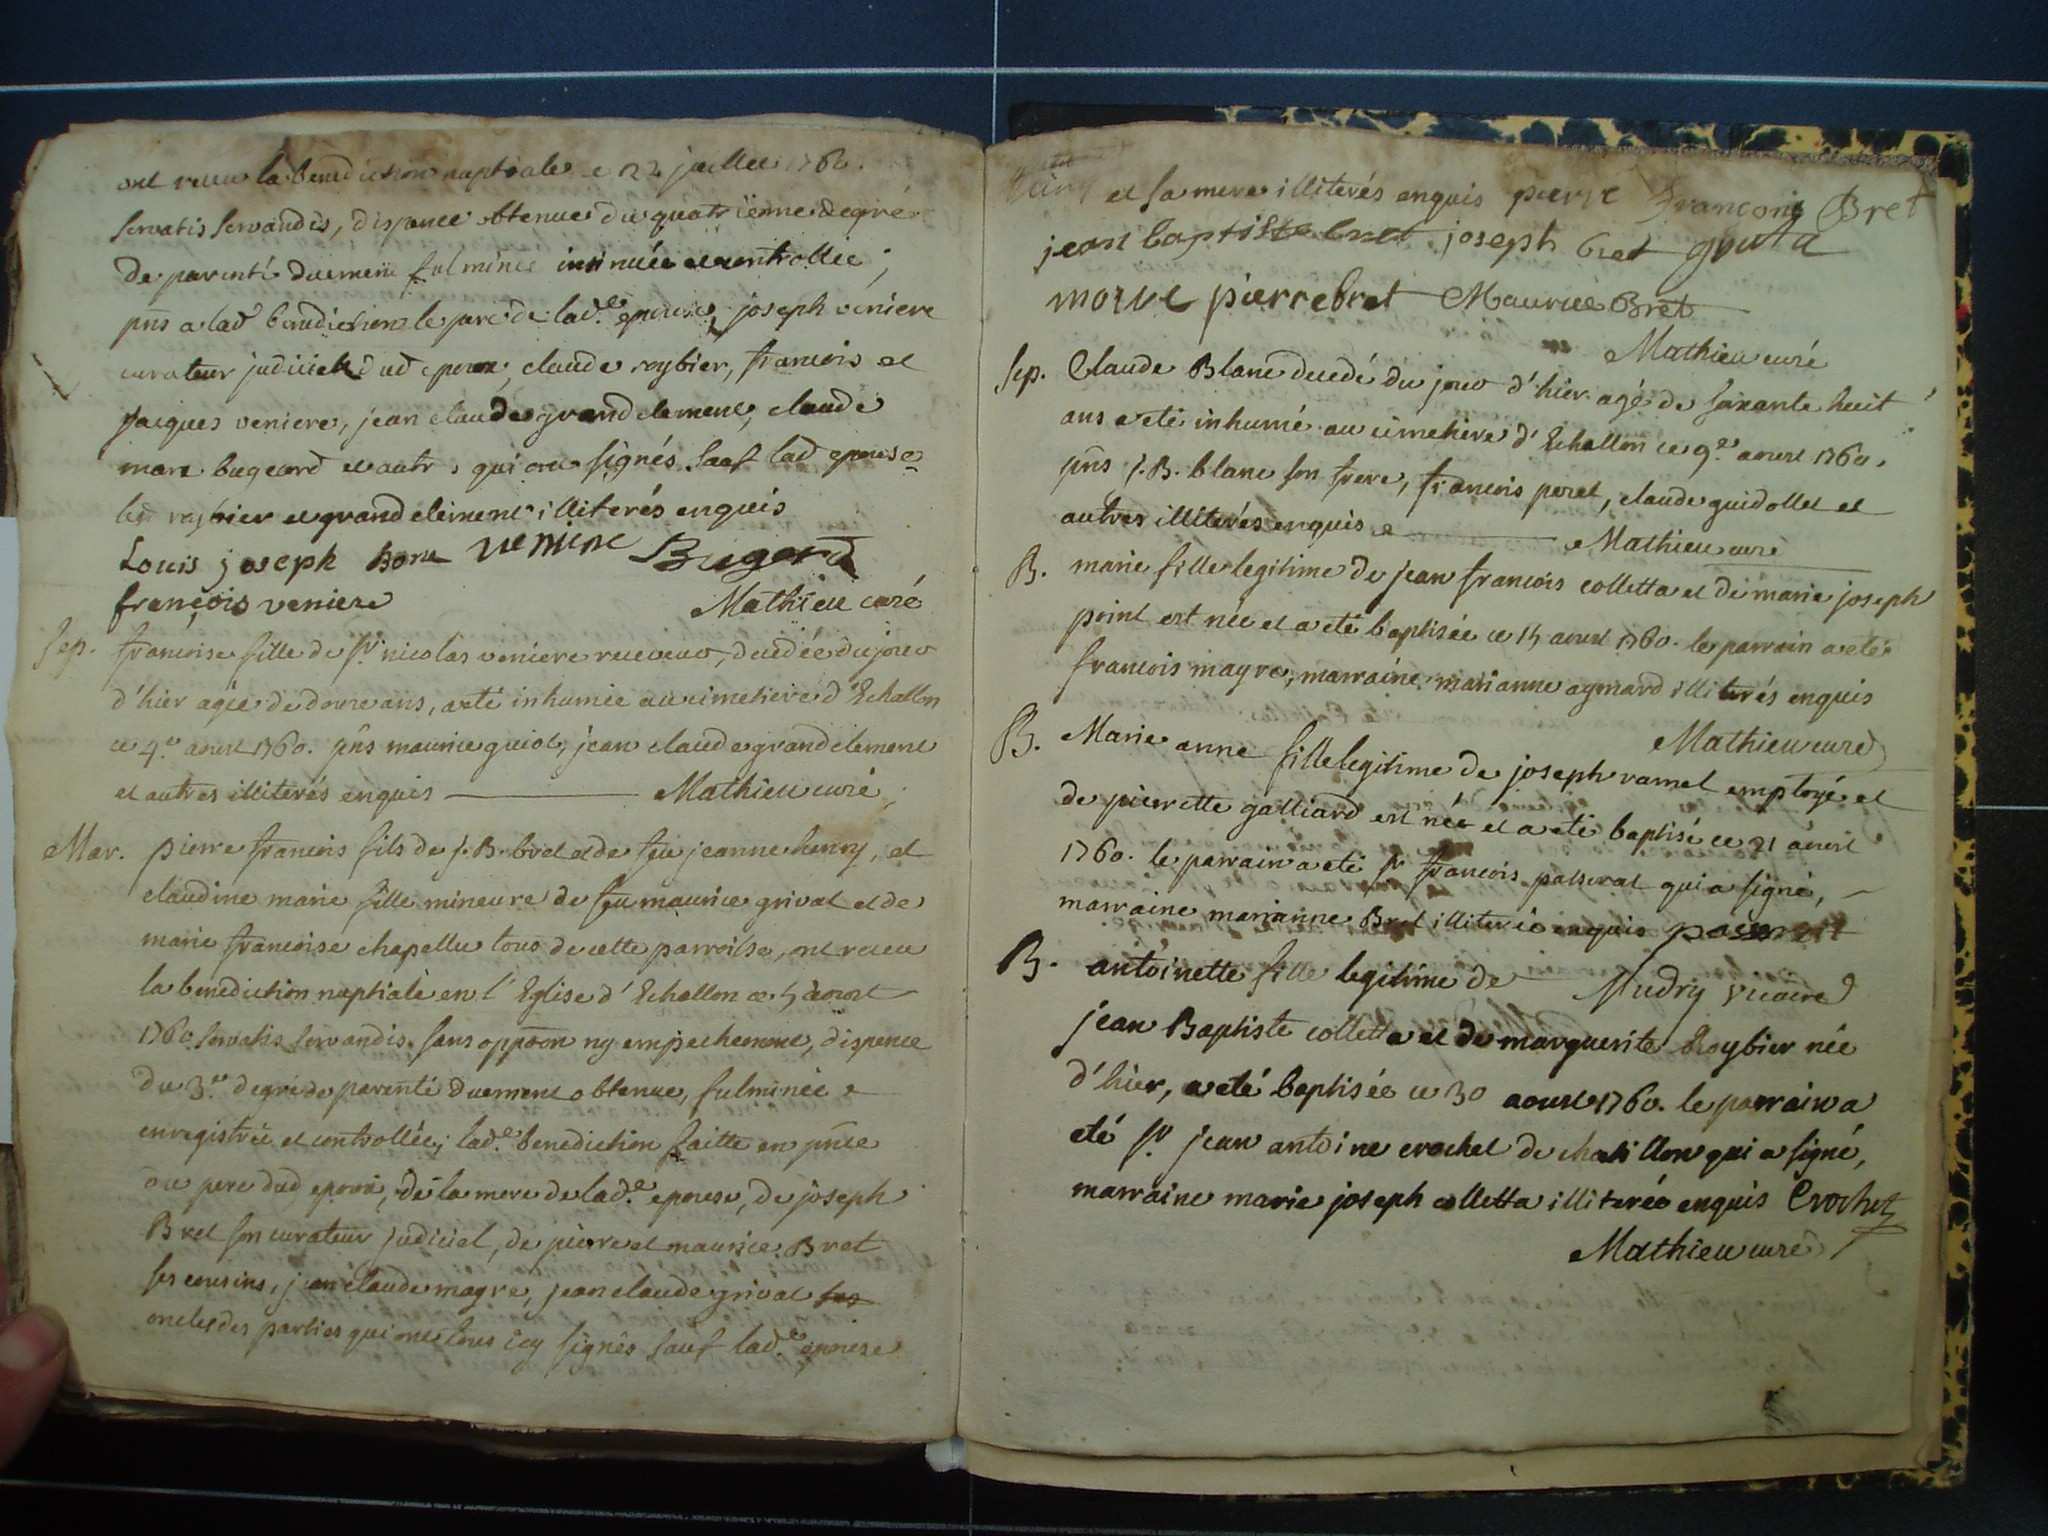 ont receu la benediction nuptiale ce 22 juillet 1760.
servatis servandis, dispence obtenue du quatrieme degré
de parenté duement fulminée insinuée et controllée,
pñs a lad benediction le pere de lad.e epouse, joseph veniere
curateur judiciel dud epoux, claude roybier, francois et
jacques veniere, jean claude grandclement, claude
marc bugeord et autres qui ont signés sauf lad epouse
led roybier et grand clement illiterés enquis
Louis joseph veniere Bugord
françois veniere Mathieu curé
Sep. francoise fille de sr nicolas veniere receveur, decedée du jour
d'hier agée de douze ans, a eté inhumée au cimetiere d'Echallon
ce 4.e aoust 1760. pñs maurice guiot, jean claude grandclement
et autres illiterés enquis Mathieu curé
Mar. pierre francois fils de j. B. bret et de feu jeanne henry, et
claudine marie fille mineure de feu maurice grivat et de
marie francoise chapellu tous de cette parroisse, ont receu
la benediction nuptiale en l'Eglise d'Echallon ce 5 aoust
1760 servatis servandis. sans oppoõn ny empechement, dispence
du 3.e degré de parenté duement obtenue, fulminée et
enregistrée et controllée; lad.e benediction faitte en pñce
du pere dud epoux, de la mere de lad.e epouse, de joseph
Bret son curateur judiciel, de pierre et maurice Bret
ses cousins, jean claude magre, jean claude grivat ses
oncles des parties qui ont tous icy signés sauf lad.e epouse
et sa mere illiterés enquis pierre françois Bret
jean baptiste bret joseph bret
pierre bret Maurice Bret
Mathieu curé
Sep. Claude Blanc decedé du jour d'hier agé de soixante huit
ans a eté inhumé au cimetiere d'Echallon ce 9.e aoust 1760.
pñs j. B. blanc son frere, francois perret, claude guidollet et
autres illiterés enquis Mathieu curé
B. marie fille legitime de jean francois colletta et de marie joseph
point est née et a eté baptisée ce 15 aoust 1760. le parrain a eté
francois magre, marraine marianne aymard illiterés enquis
Mathieu curé
B. Marie anne fille legitime de joseph ramel employé et
de pierrette galliard est née et a eté baptisé ce 21 aoust
1760. le parrain a eté sr francois passerat qui a signé,
marraine marianne Bret illiterée enquis passerat
Mudry vicaire
B. antoinette fille legitime de
jean Baptiste colletta et de marguerite Roybier née
d'hier, a eté baptisée ce 30 aoust 1760. le parrain a
eté sr jean antoine crochet de chatillon qui a signé,
marraine marie joseph colletta illiterée enquis Crochet
Mathieu curé